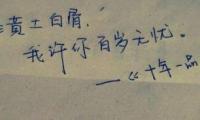 黄土白骨,
我许你百岁无忧。
—《十年一品